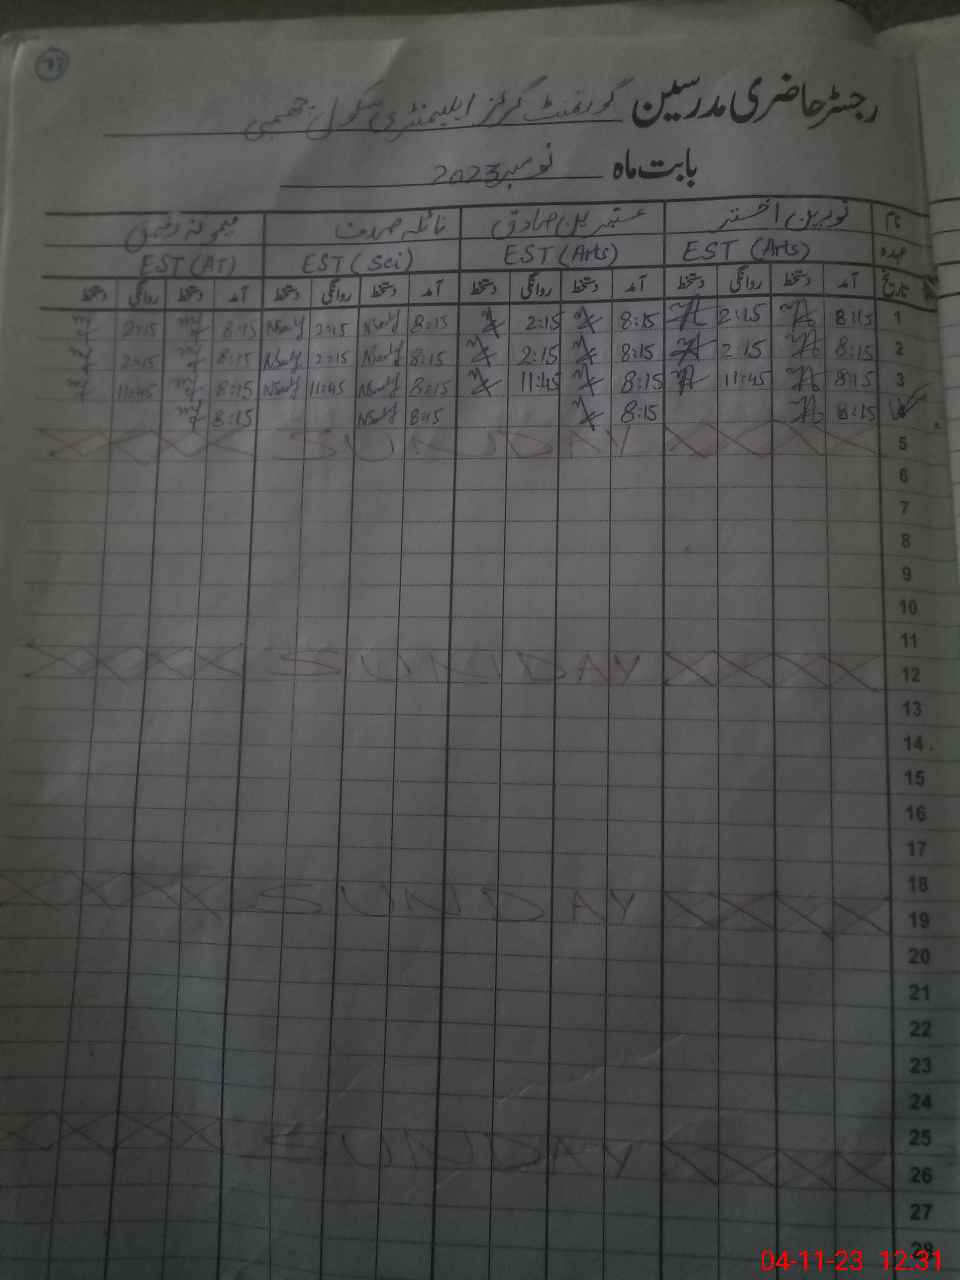 رجسٹر حاضری مدرسین گورنمنٹ گرلز ایلیمنٹری سکول
بابت ماہ نومبر 2023
نام نورین اختر عنبرین صادق نائلہ صدف میمونہ رفیق
عہدہ EST (Arts) EST (Arts) EST (Sci) EST (AT)
تاریخ آمد دستخط روانگی دستخط آمد دستخط روانگی دستخط آمد دستخط روانگی دستخط آمد دستخط روانگی دستخط
1 8:15 2:15 8:15 2:15 8:15 2:15 8:15 2:15
2 8:15 2:15 8:15 2:15 8:15 2:15 8:15 2:15
3 8:15 11:45 8:15 11:45 8:15 11:45 8:15 11:45
4 8:15 8:15 8:15 8:15
5 SUNDAY
6
7
8
9
10
11
12 SUNDAY
13
14
15
16
17
18
19 SUNDAY
20
21
22
23
24
25
26 SUNDAY
27
28
04-11-23 12:31